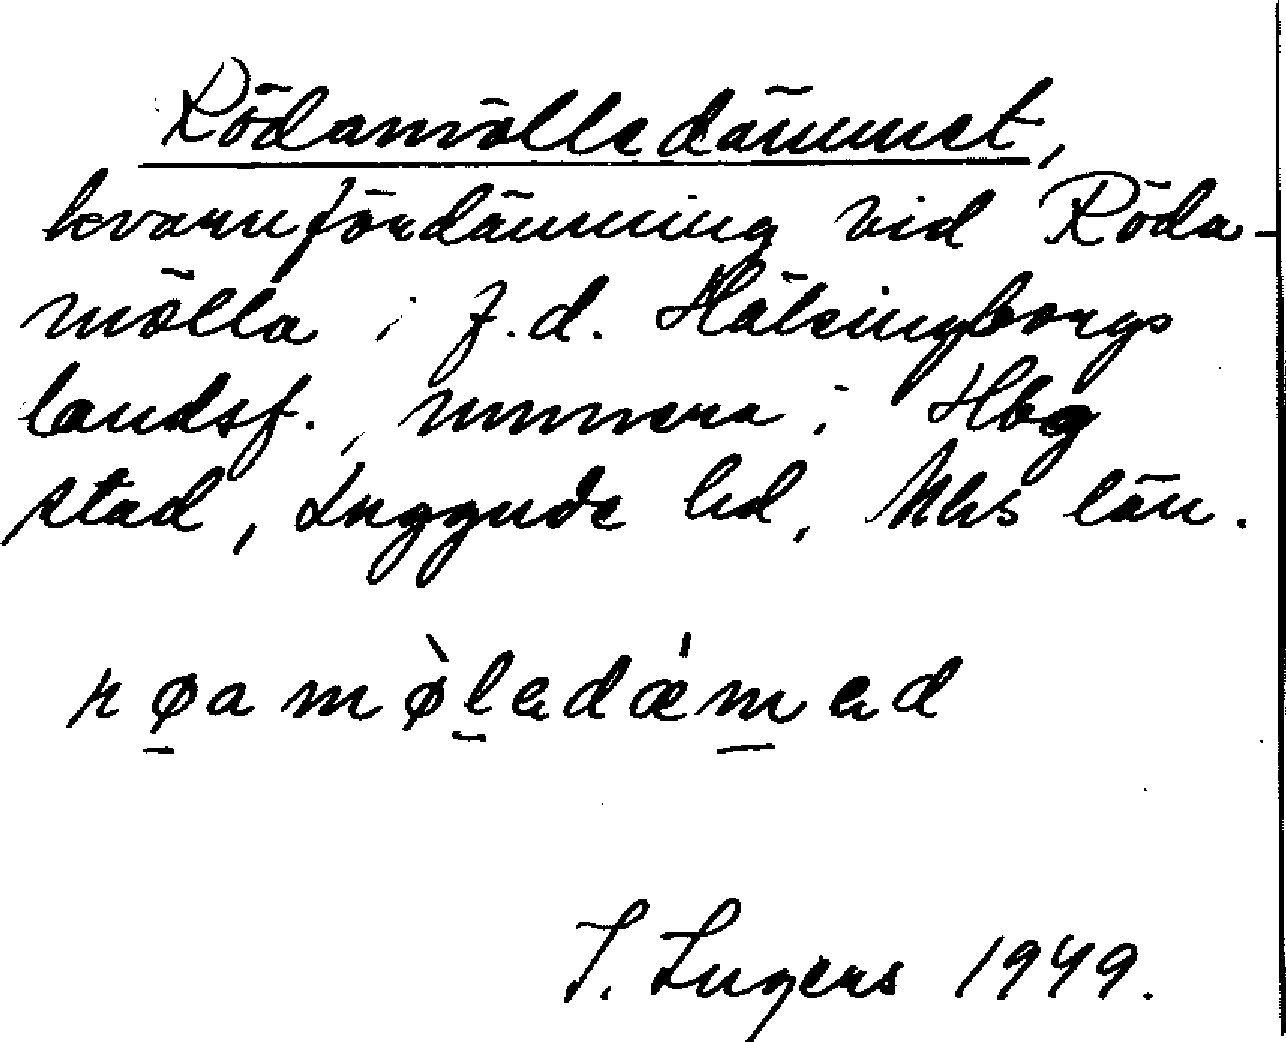 Rödamölledämmet,
kvarnfördämning vid Röda-
mölla i f.d. Hälsingborgs
landsf., numera i Hbg
stad, Luggude hd, Mhs län.
røamø̀lədæ'məd
I. Ingers 1949.